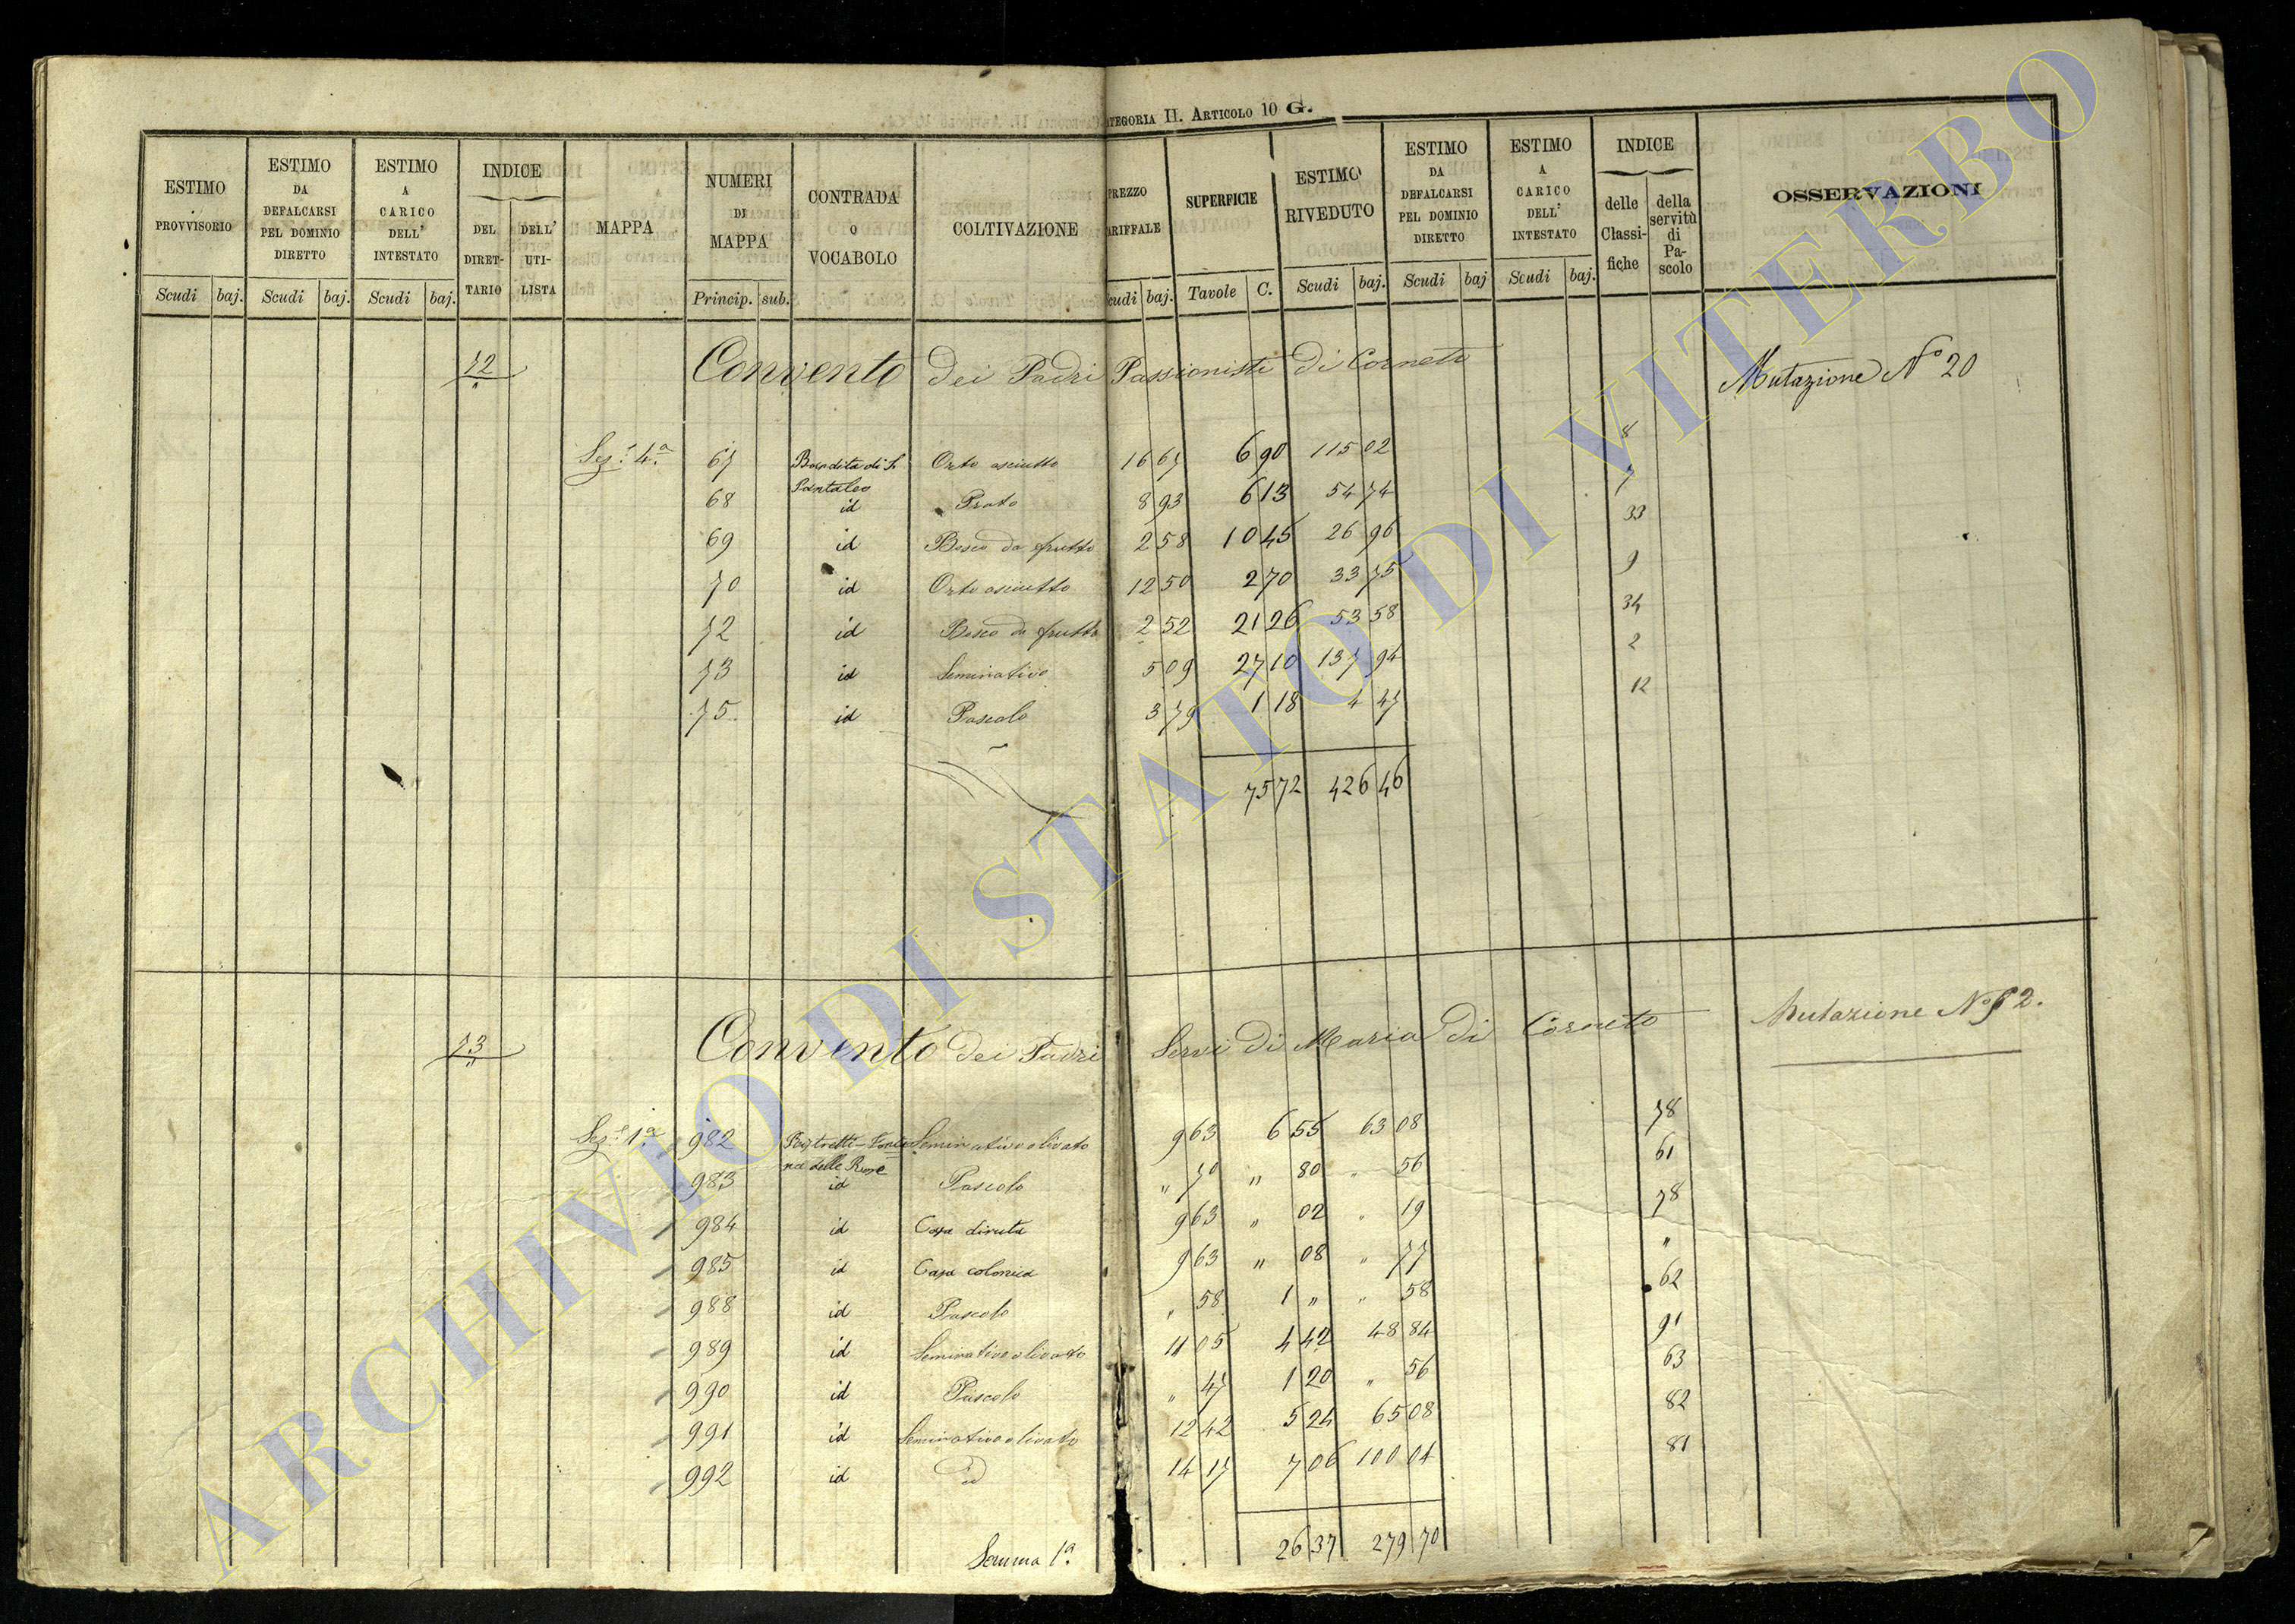 CATEGORIA II. ARTICOLO 10 G.
ESTIMO PROVVISORIO | ESTIMO DA DEFALCARSI PEL DOMINIO DIRETTO | ESTIMO A CARICO DELL' INTESTATO | INDICE DEL DIRETTARIO | DELL' UTILISTA | MAPPA | NUMERI DI MAPPA | CONTRADA O VOCABOLO | COLTIVAZIONE | PREZZO TARIFFALE | SUPERFICIE | ESTIMO RIVEDUTO | ESTIMO DA DEFALCARSI PEL DOMINIO DIRETTO | ESTIMO A CARICO DELL' INTESTATO | INDICE delle Classifiche | della servitù di Pascolo | OSSERVAZIONI
Scudi | baj. | Scudi | baj. | Scudi | baj. | Princip. | sub. | Scudi | baj. | Tavole | C. | Scudi | baj. | Scudi | baj | Scudi | baj.
12 Convento dei Padri Passionisti di Corneto Mutazione N° 20
Sez.e 4.a 67 Bandita di S. Pantaleo Orto asciutto 16 67 6 90 115 02 8
68 id Prato 8 93 6 13 54 74 7
69 id Bosco da frutto 2 58 10 45 26 96 33
70 id Orto asciutto 12 50 2 70 33 75 9
72 id Bosco da frutto 2 52 21 26 53 58 34
73 id Seminativo 5 09 27 10 137 94 2
75 id Pascolo 3 79 1 18 4 47 12
75 72 426 46
13 Convento dei Padri Servi di Maria di Corneto Mutazione N° 2.
Sez.e 1.a 982 na delle Rose Seminativo olivato 9 63 6 55 63 08 78
983 id Pascolo " 70 " 80 " 56 61
984 id Casa diruta 9 63 " 02 " 19 78
985 id Casa colonica 9 63 " 08 " 77 "
988 id Pascolo " 58 1 " " 58 62
989 id Seminativo olivato 11 05 4 42 48 84 91
990 id Pascolo " 47 1 20 " 56 63
991 id Seminativo olivato 12 42 5 24 65 08 82
992 id id 14 17 7 06 100 04 81
Somma 1.a 26 37 279 70
ARCHIVIO DI STATO DI VITERBO